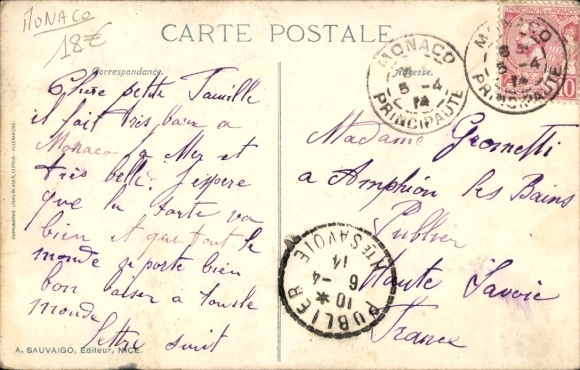 MONACO
18€
CARTE POSTALE
Correspondance.
Adresse.
PRINCIPAUTÉ DE MONACO
10
MONACO
5 -4
14
PRINCIPAUTÉ
MONACO
5 -4
14
PRINCIPAUTÉ
Chère petite Famille
il fait très beau a
Monaco la Mer et
très belle. J'espere
que la tante va
bien et que tout le
monde se porte bien
bon baiser a tous le
monde
lettre suit
Madame Grometti
a Amphion les Bains
Publier
Haute Savoie
France
PUBLIER
HTE SAVOIE
10 *
6 -4
14
A. SAUVAIGO, Éditeur, NICE.